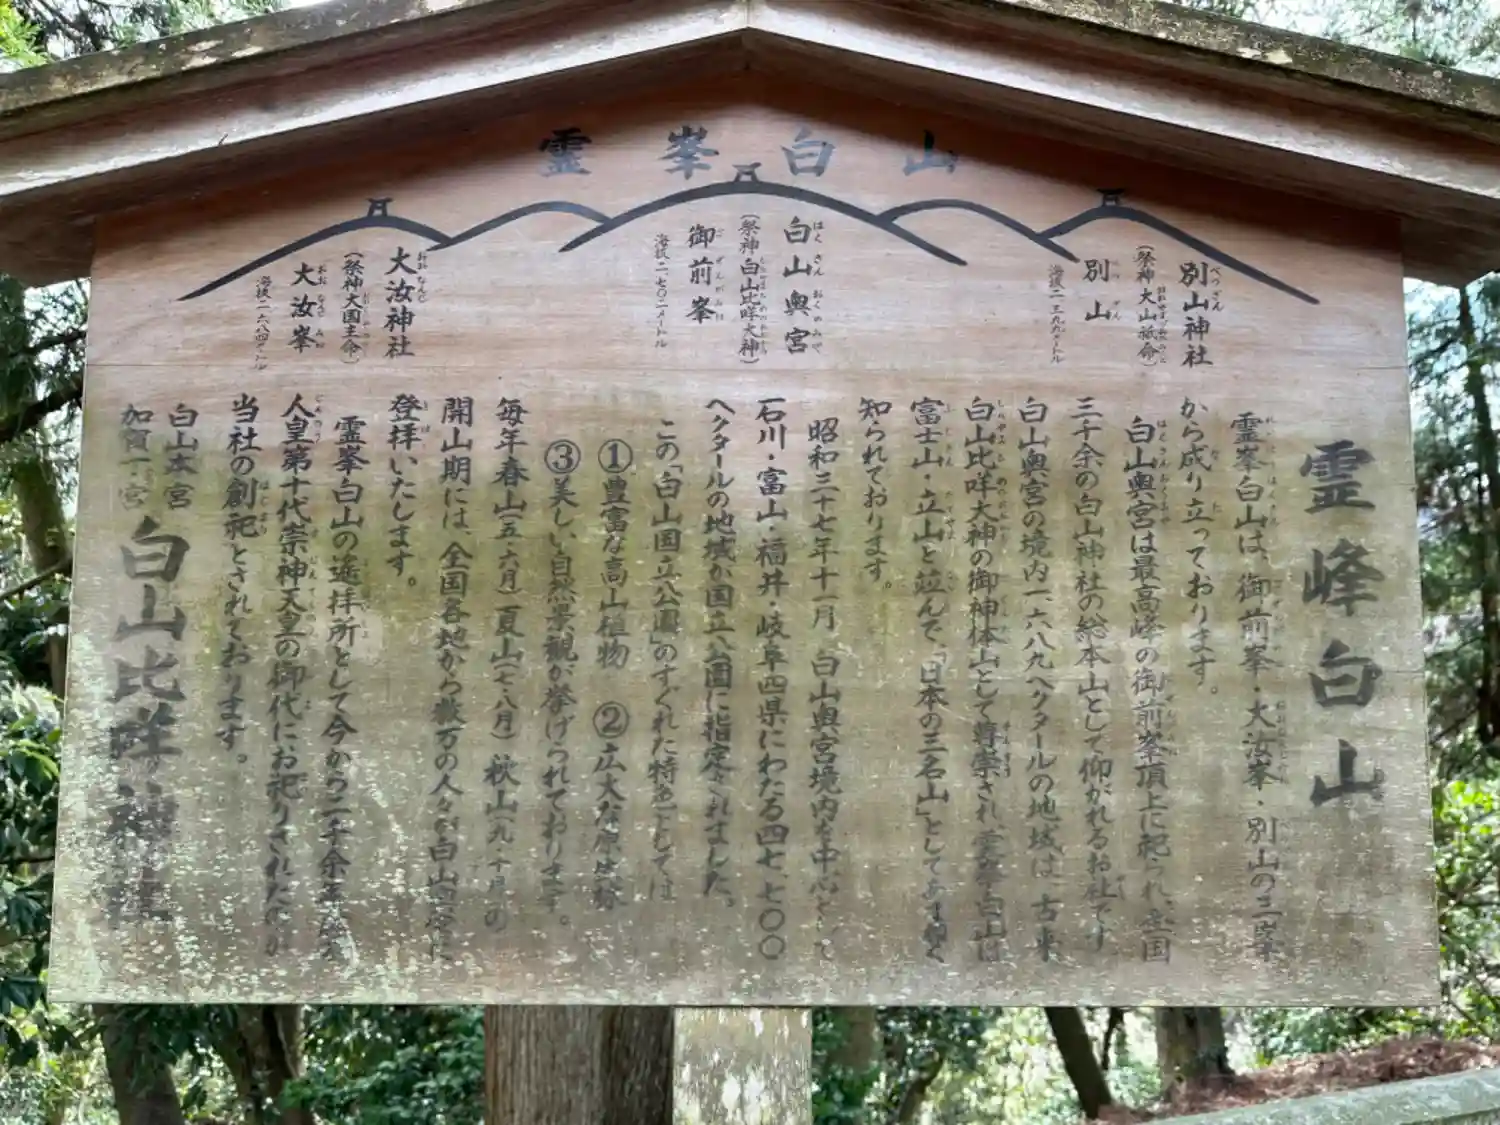 山白峯霊
別山神社
(祭神 大山祇命)
別山
海抜二、三九九メートル
白山奥宮
(祭神 白山比咩大神)
御前峯
海抜二、七〇二メートル
大汝神社
(祭神 大国主命)
大汝峯
海抜二、六八四メートル
霊峰白山
霊峯白山は、御前峯・大汝峯・別山の三峯
から成り立っております。
白山奥宮は最高峰の御前峯頂上に祀られ、全国
三千余の白山神社の総本山として仰がれるお社です
白山奥宮の境内一六八九ヘクタールの地域は、古来
白山比咩大神の御神体山として尊崇され霊峯白山は
富士山・立山と並んで、「日本の三名山」としてあまねく
知られております。
昭和三十七年十一月 白山奥宮境内を中心として
石川・富山・福井・岐阜四県にわたる四七、七〇〇
ヘクタールの地域が国立公園に指定されました。
この「白山国立公園」のすぐれた特色としては
①豊富な高山植物 ②広大な原生林
③美しい自然景観が挙げられております。
毎年春山(五・六月)夏山(七・八月)秋山(九・十月)の
開山期には、全国各地から数万の人々が白山奥宮に
登拝いたします。
霊峯白山の遙拝所として今から二千余年
人皇第十代崇神天皇の御代にお祀りされたのが
当社の創祀とされております。
白山本宮
加賀一ノ宮
白山比咩神社